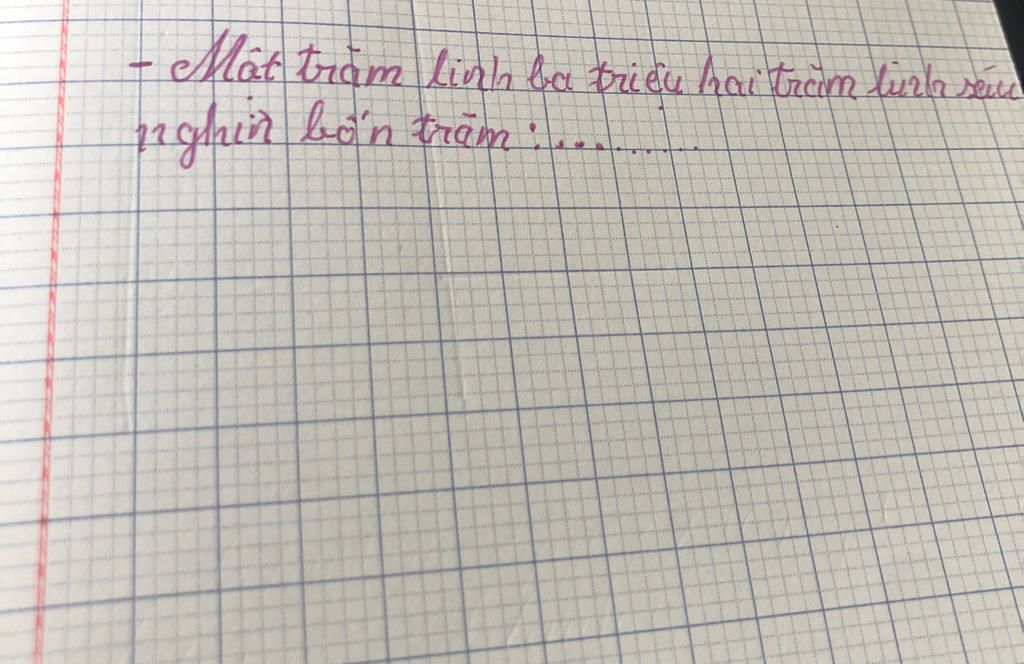 - Một trăm linh ba triệu hai trăm linh sáu
nghìn bốn trăm :..........